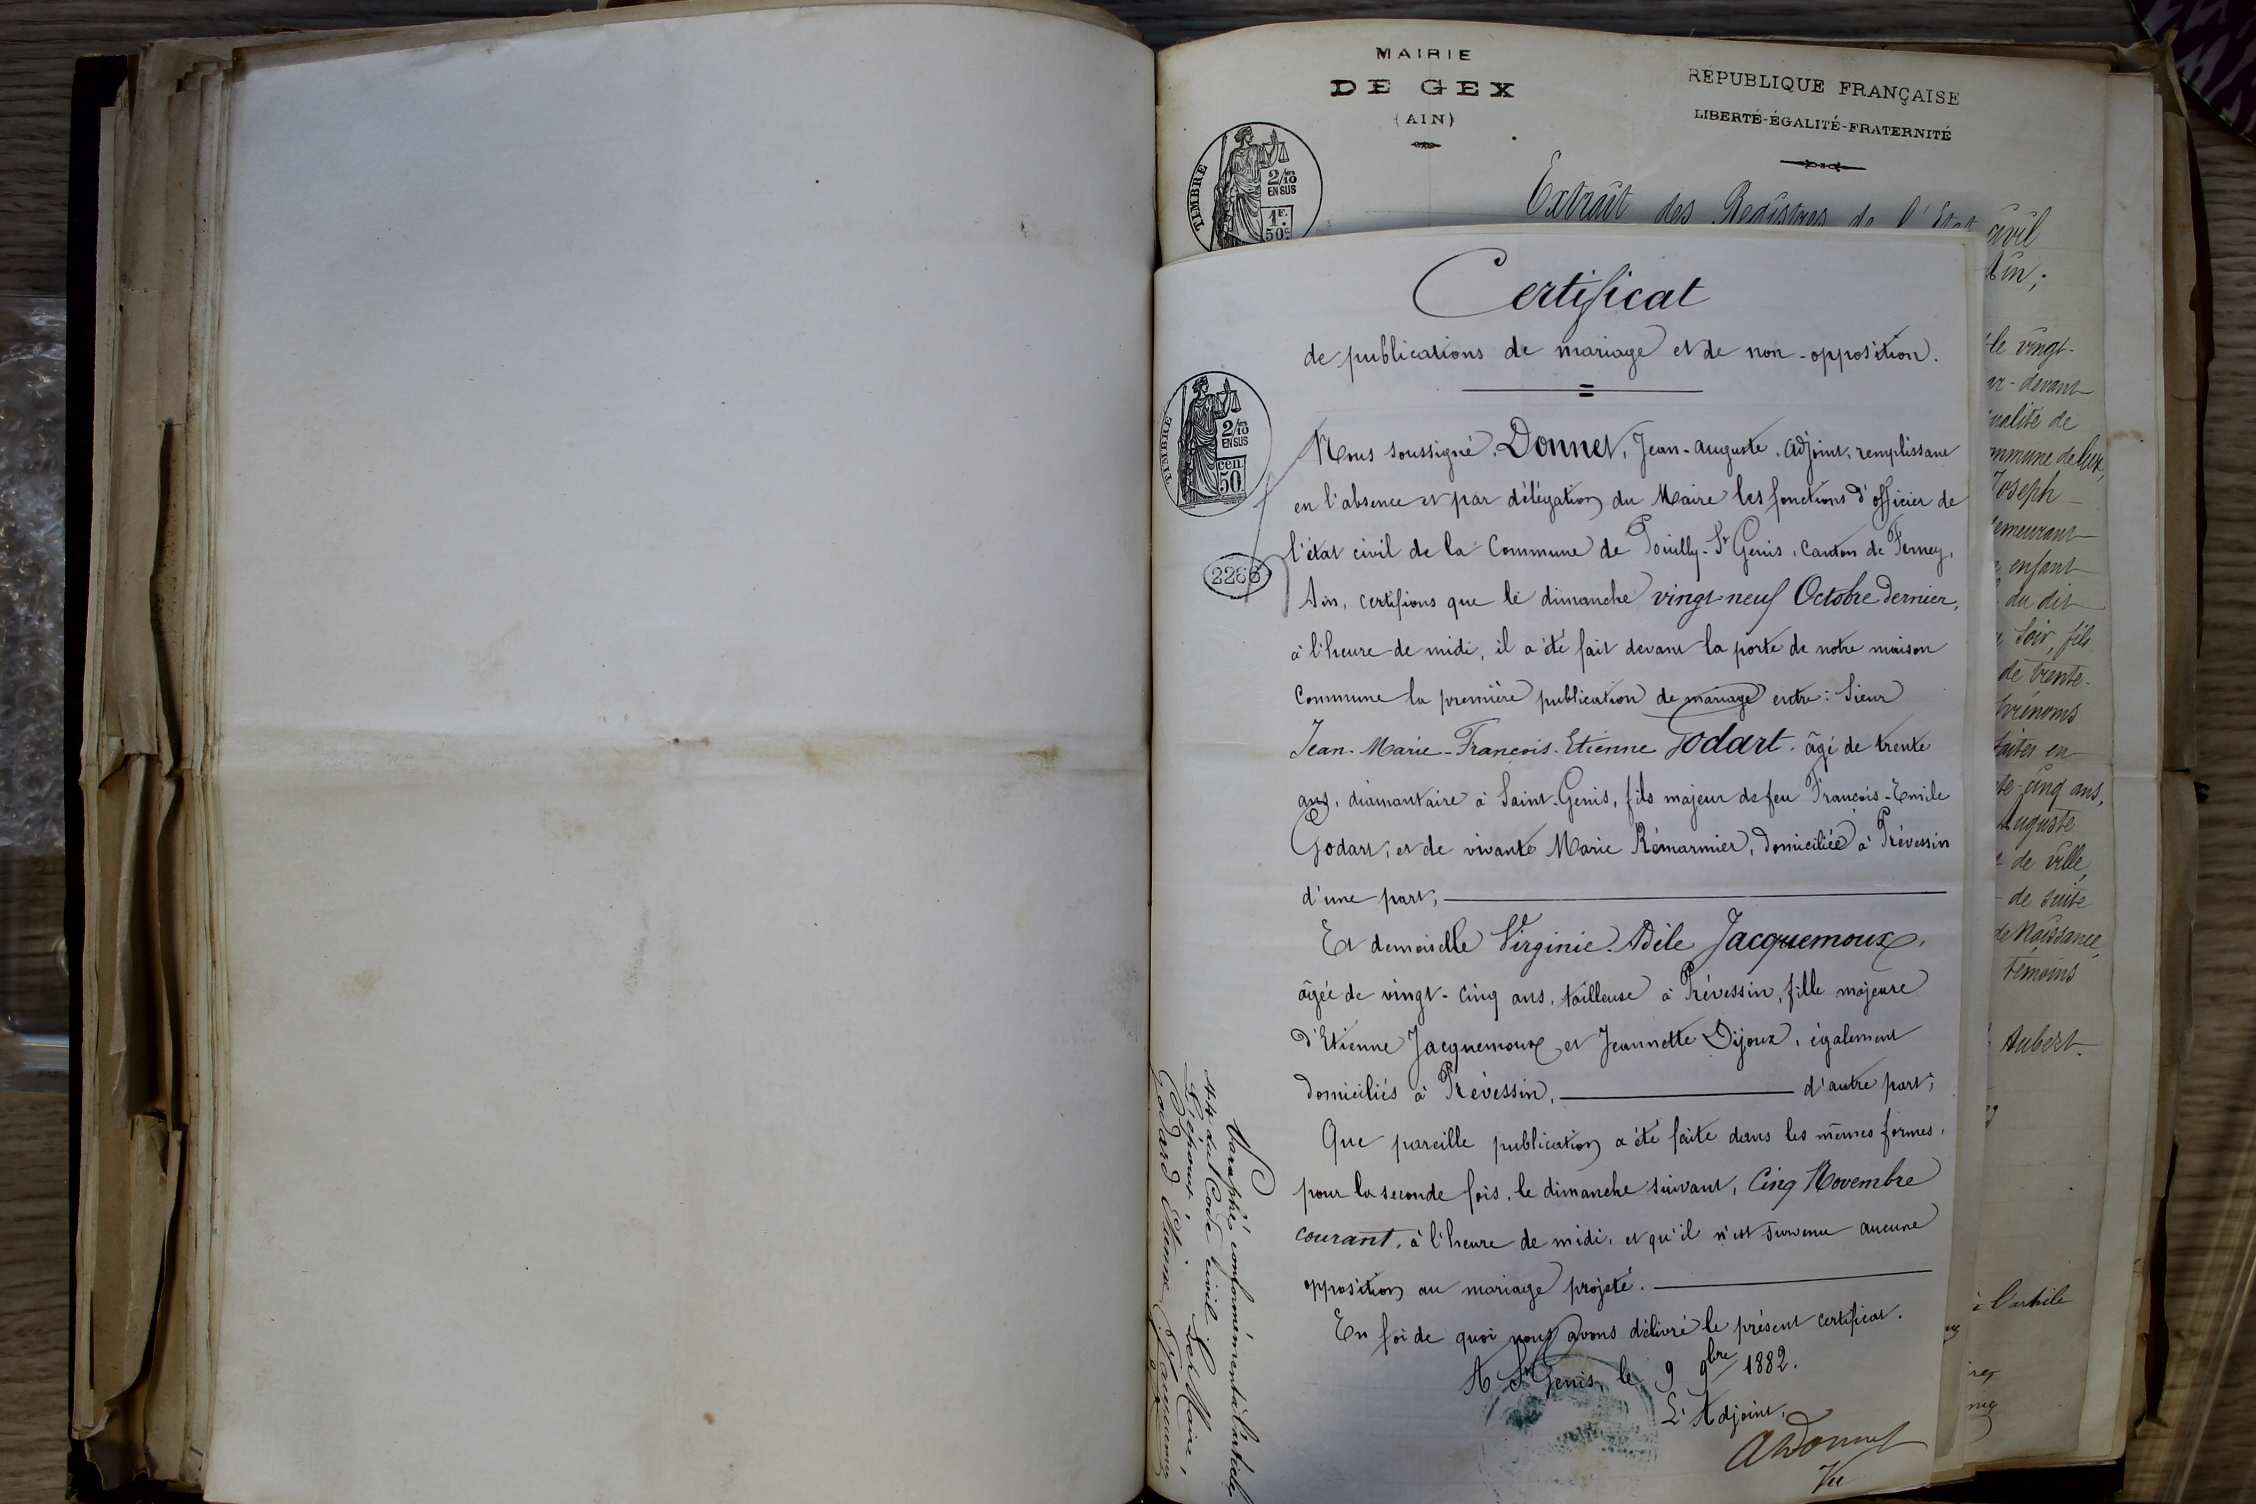 MAIRIE
DE GEX
(AIN)
RÉPUBLIQUE FRANÇAISE
LIBERTÉ-ÉGALITÉ-FRATERNITÉ
TIMBRE
2/10
EN SUS
1F.
50c
Extrait des Registres de l'Etat civil
Ain;
Certificat
de publications de mariage et de non-opposition.
TIMBRE
2/10
EN SUS
cen
50
2266
Nous soussigné, Donnet, Jean-Auguste, adjoint, remplissant
en l'absence et par délégation du Maire les fonctions d'officier de
l'état civil de la Commune de Pouilly-St Genis, canton de Ferney,
Ain, certifions que le dimanche vingt-neuf Octobre dernier,
à l'heure de midi, il a été fait devant la porte de notre maison
Commune la première publication de mariage entre: Sieur
Jean-Marie-François-Etienne Godart, âgé de trente
ans, diamantaire à Saint-Genis, fils majeur de feu François-Emile
Godart, et de vivante Marie Rémarmier, domiciliée à Prévessin
d'une part;
Et demoiselle Virginie-Adèle Jacquemoux,
âgée de vingt-cinq ans, tailleuse à Prévessin, fille majeure
d'Etienne Jacquemoux et Jeannette Dijoux, également
domiciliés à Prévessin, d'autre part;
Que pareille publication a été faite dans les mêmes formes,
pour la seconde fois, le dimanche suivant, Cinq Novembre
courant, à l'heure de midi, et qu'il n'est survenu aucune
opposition au mariage projeté.
En foi de quoi nous avons délivré le présent certificat.
A St Genis, le 9 9bre 1882.
L'Adjoint,
ADonnet
Vu
Paraphé conformément à l'article
44 du Code civil
Déposant, Le Maire,
Godard Etienne
le vingt-
devant
qualité de
Joseph
demeurant
enfant
du dit
soir, fils
de trente-
prénoms
cinq ans,
Auguste
de ville,
de suite
de Naissance,
témoins
Aubert.
l'article